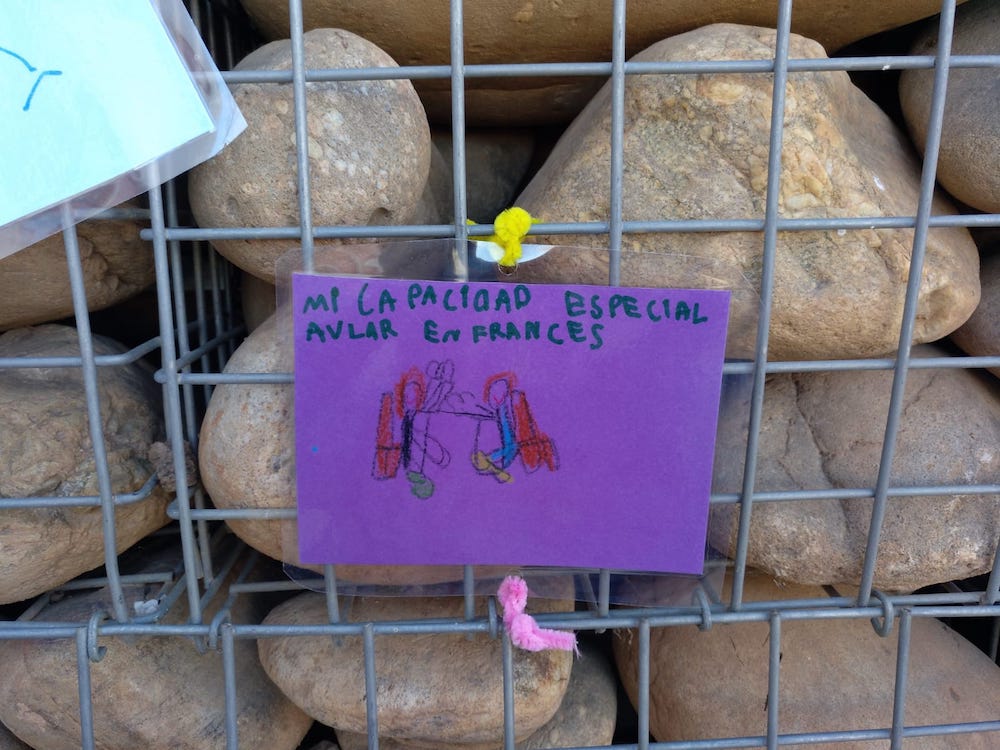 MI CAPACIDAD ESPECIAL
AVLAR EN FRANCES